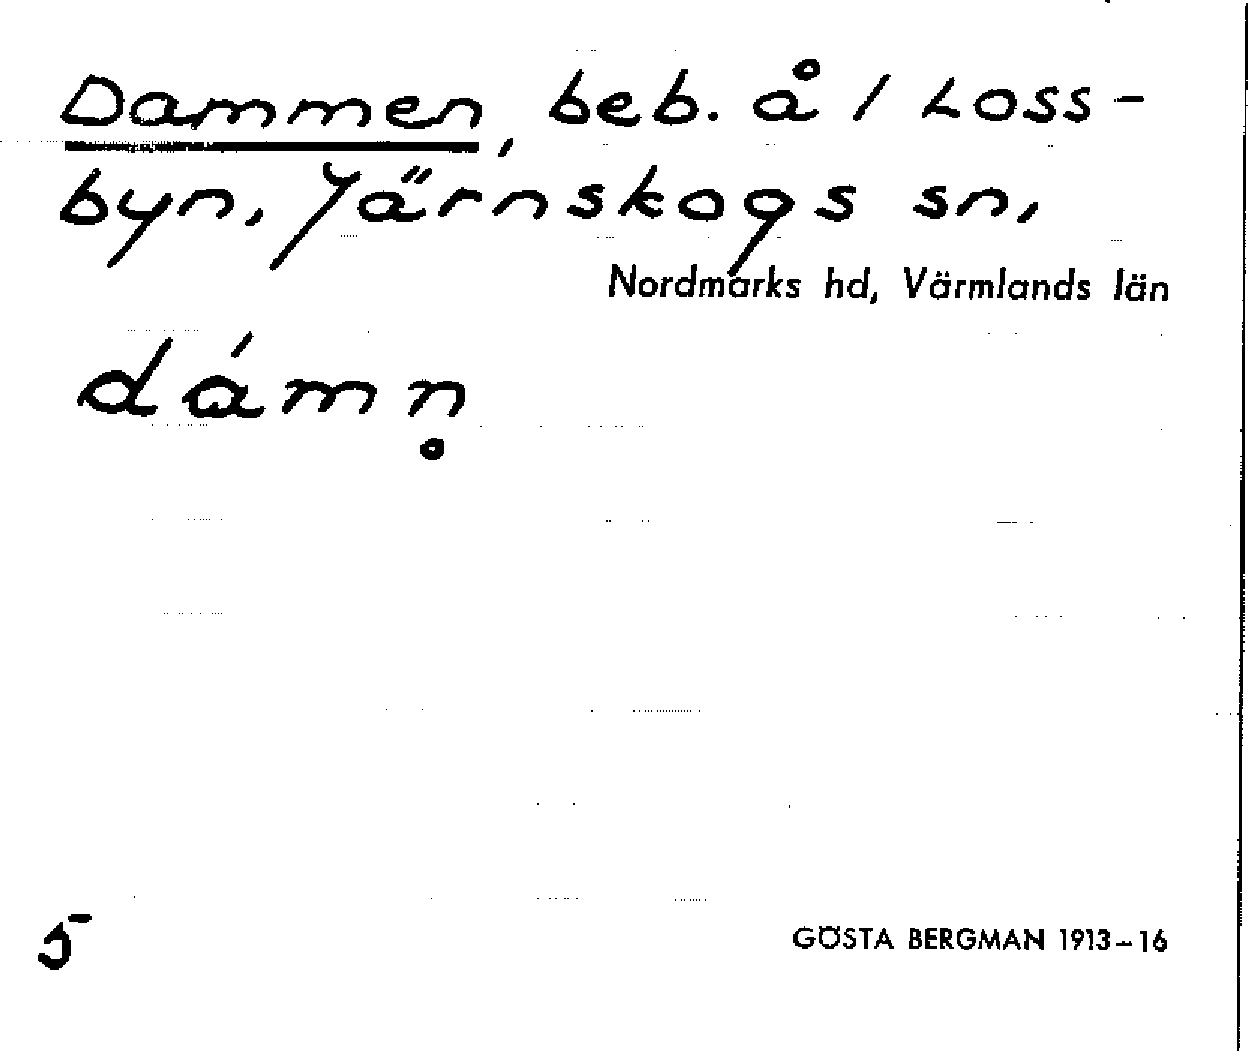 Dammen, beb. å 1 Loss-
byn, Järnskogs sn,
Nordmarks hd, Värmlands län
dámn̥
5
GÖSTA BERGMAN 1913–16